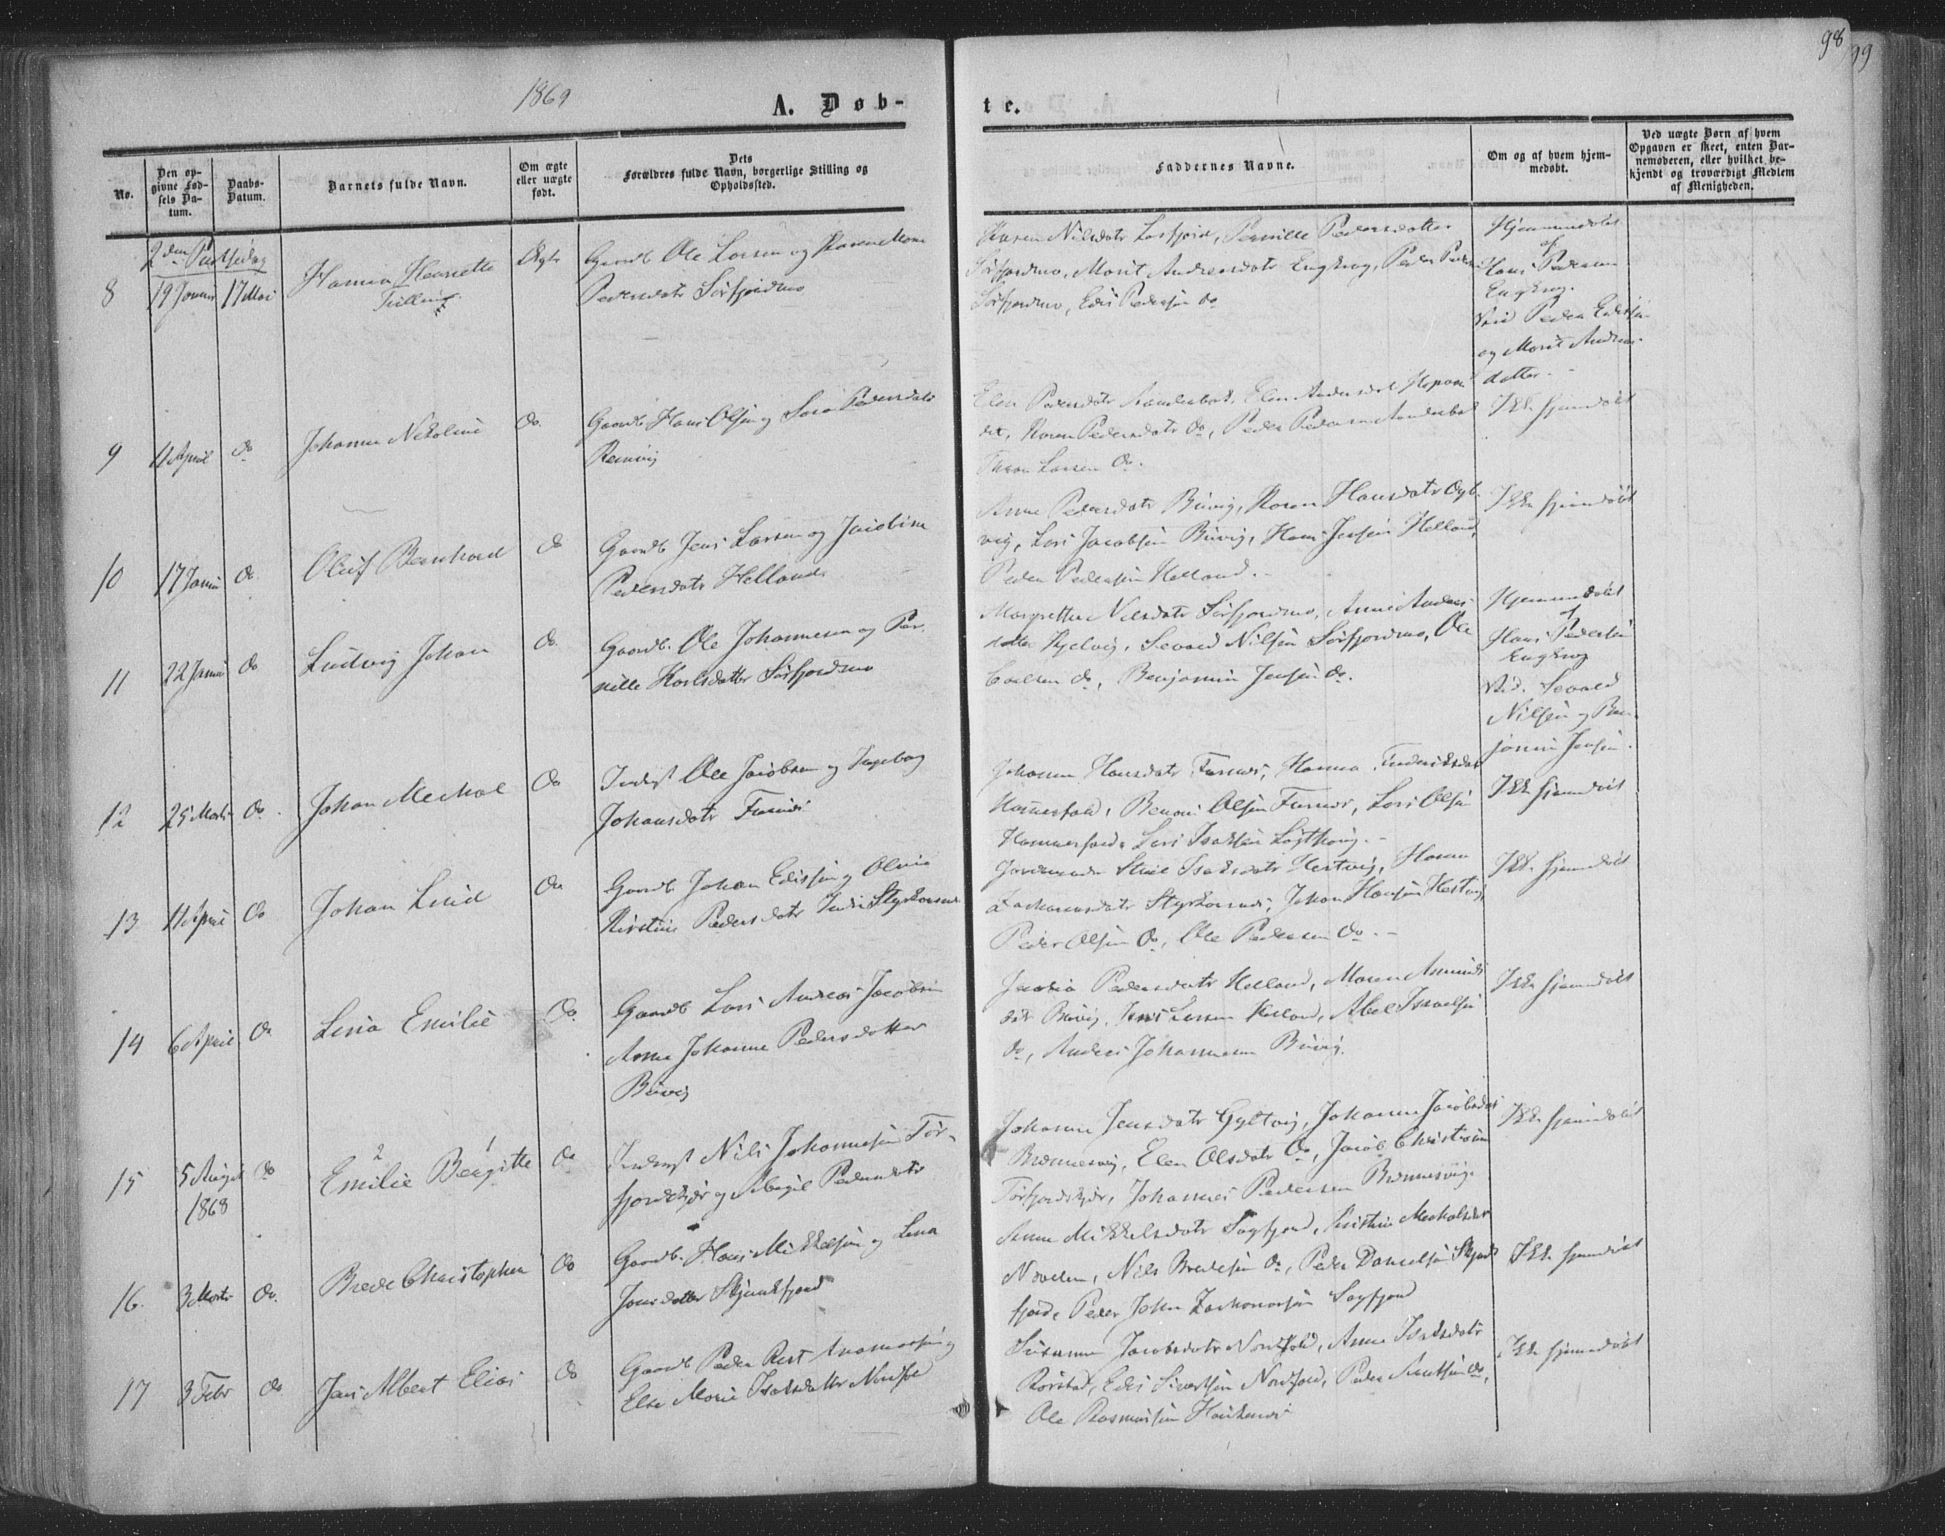 98
99
1869
A. Døb-
te.
No.
Den op-
givne Fød-
sels Da-
tum.
Daabs-
Datum.
Barnets fulde Navn.
Om ægte
eller uægte
født.
Dets
Forældres fulde Navn, borgerlige Stilling og
Opholdssted.
Faddernes Navne.
Om og af hvem hjem-
medøbt.
Ved uægte Børn af hvem
Opgaven er skeet, enten Bar-
nemoderen, eller hvilket be-
kjendt og troværdigt Medlem
af Menigheden.
2den Pintsedag
8
19 Januar
17 Mai
Hanna Henriette
Tvilling
Ægte
Gaardb. Ole Larsen og Karen Mona
Pedersdatr Sørfjordmo
Karen Nilsdatr Sørfjord, Pernille Pedersdatter
Sørfjordmo, Marit Andreasdatr Engkrog, Peder
Sørfjordmo, Edis Pedersen do
Hjemmedøbt
af
Hans Pedersen
Engkrog.
Ved Peder
og Marit
datter.
9
11 April
do
Johanna Nikoline
do.
Gaardb. Hans Olsen og Sara Pedersdatr
Reinvig
Elen Pedersdatr
Karen Pedersdatr do, Peder Pedersen
Larsen do.
Ikke hjemmedøbt
10
17 Januar
do.
Oluf Bernhard
do
Gaardb. Jens Larsen og Jacobine
Pedersdatr Helland
Anne Pedersdatr Buvig, Karen Hansdatr
vig, Lars Jacobsen Buvig, Hans Jensen Helland,
Peder Pedersen Helland.
Ikke hjemmedøbt
11
22 Januar
do
Ludvig Johan
do.
Gaardb. Ole Johannesen og Per
nille Karlsdatter Sørfjordmo
Margrethe Nilsdatr Sørfjordmo, Anne
datter Kjelvig, Sevald Nilsen Sørfjordmo, Ole
Carlsen do, Benjamin Jensen do.
Hjemmedøbt
af
Hans Pedersen
Engkrog
Ved. Sevald
Nilsen og Ben
jamin Jensen.
12
25 Marts
do.
Johan Mechal
do
Inderst Ole Jacobsen og Ingebog
Johansdatr Furnes
Johanna Hansdatr Furnes, Hanna Fredriksdatr
Hammerfald, Benoni Olsen Furnes, Lars Olsen
Hammerfald, Lars Isaksen
Ikke hjemmedøbt
13
11 April
do
Johan Lind
do
Gaardb. Johan Edissen og Olivia
Kirstine Pedersdatr Indre Styrkesnes
Isaksdatr Hestvig, Hanna
Zachariasdatr Styrkesnes, Johan Hansen Hestvig,
Peder Olsen do, Ole Pedersen do.
Ikke hjemmedøbt
14
6 April
do
Lina Emilie
do.
Gaardb. Lars Andreas Jacobsen
Anna Johanna Pedersdatter
Buvig
Pedersdatr Helland, Maren
datr Buvig, Jens Larsen Helland, Abel Israelsen
do, Anders Johannesen Buvig.
Ikke hjemmedøbt
15
5 August
1868
do
2 1
Emilie Bergitte
do
Inderst Nils Johannesen Tør-
fjordskjær og Abigael Pedersdatr
Johanna Jensdatr Gyltvig, Johanna Jacobsdatr
Brennesvig, Elen Olsdatr do, Jacob Christian
Tørfjordskjær, Johannes Pedersen Brennesvig.
Ikke hjemmedøbt
16.
3 Marts
do.
Brede Christopher
do
Gaardb. Hans Mikkelsen og Lena
Jonsdatter Skjunksfjord
Anna Mikkelsdatr Sagfjord, Kirstine Mechalsdatr
Nils Bredesen do, Peder Danielsen
fjord, Peder John Zachariassen Sagfjord
Ikke hjemmedøbt
17
3 Febr
do
Jens Albert Elias
do
Gaardb. Peder Rist Anamarsen og
Else Marie Isaksdatter Nordfold
Susanna Jacobsdatr Nordfold, Anne Isaksdatr
Rørstad, Edis Sivertsen Nordfold, Peder Knutsen do,
Ole Rasmussen
Ikke hjemmedøbt